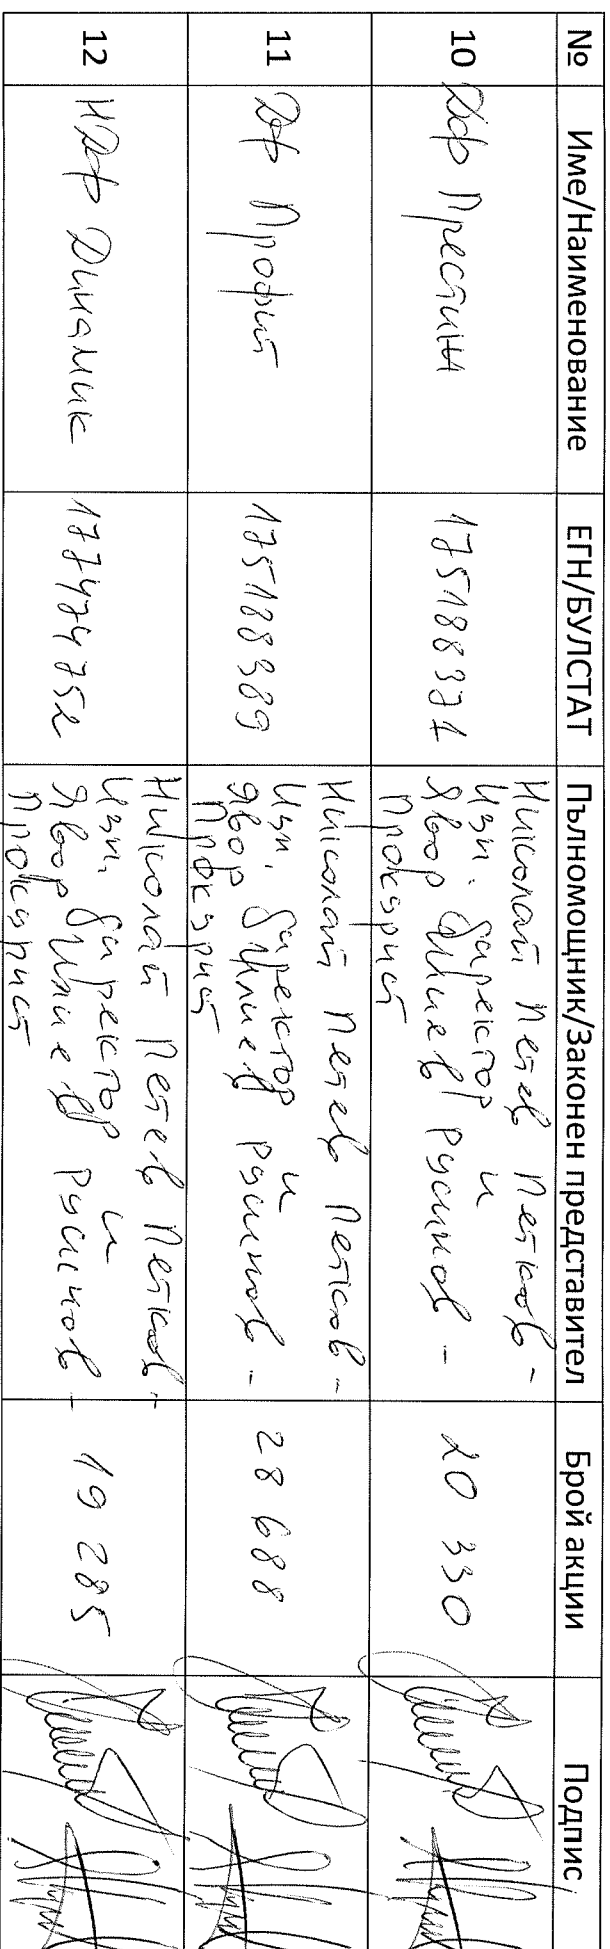 № Име/Наименование ЕГН/БУЛСТАТ Пълномощник/Законен представител Брой акции Подпис
10 ДФ Престиж 175188371 Николай Петев Петков - 20 330
Изп. директор и
Явор Илиев Русинов -
Прокурист
11 ДФ Профит 175188389 Николай Петев Петков - 28 688
Изп. директор и
Явор Илиев Русинов -
Прокурист
12 НДФ Динамик 177474752 Николай Петев Петков - 19 285
Изп. директор и
Явор Илиев Русинов -
Прокурист